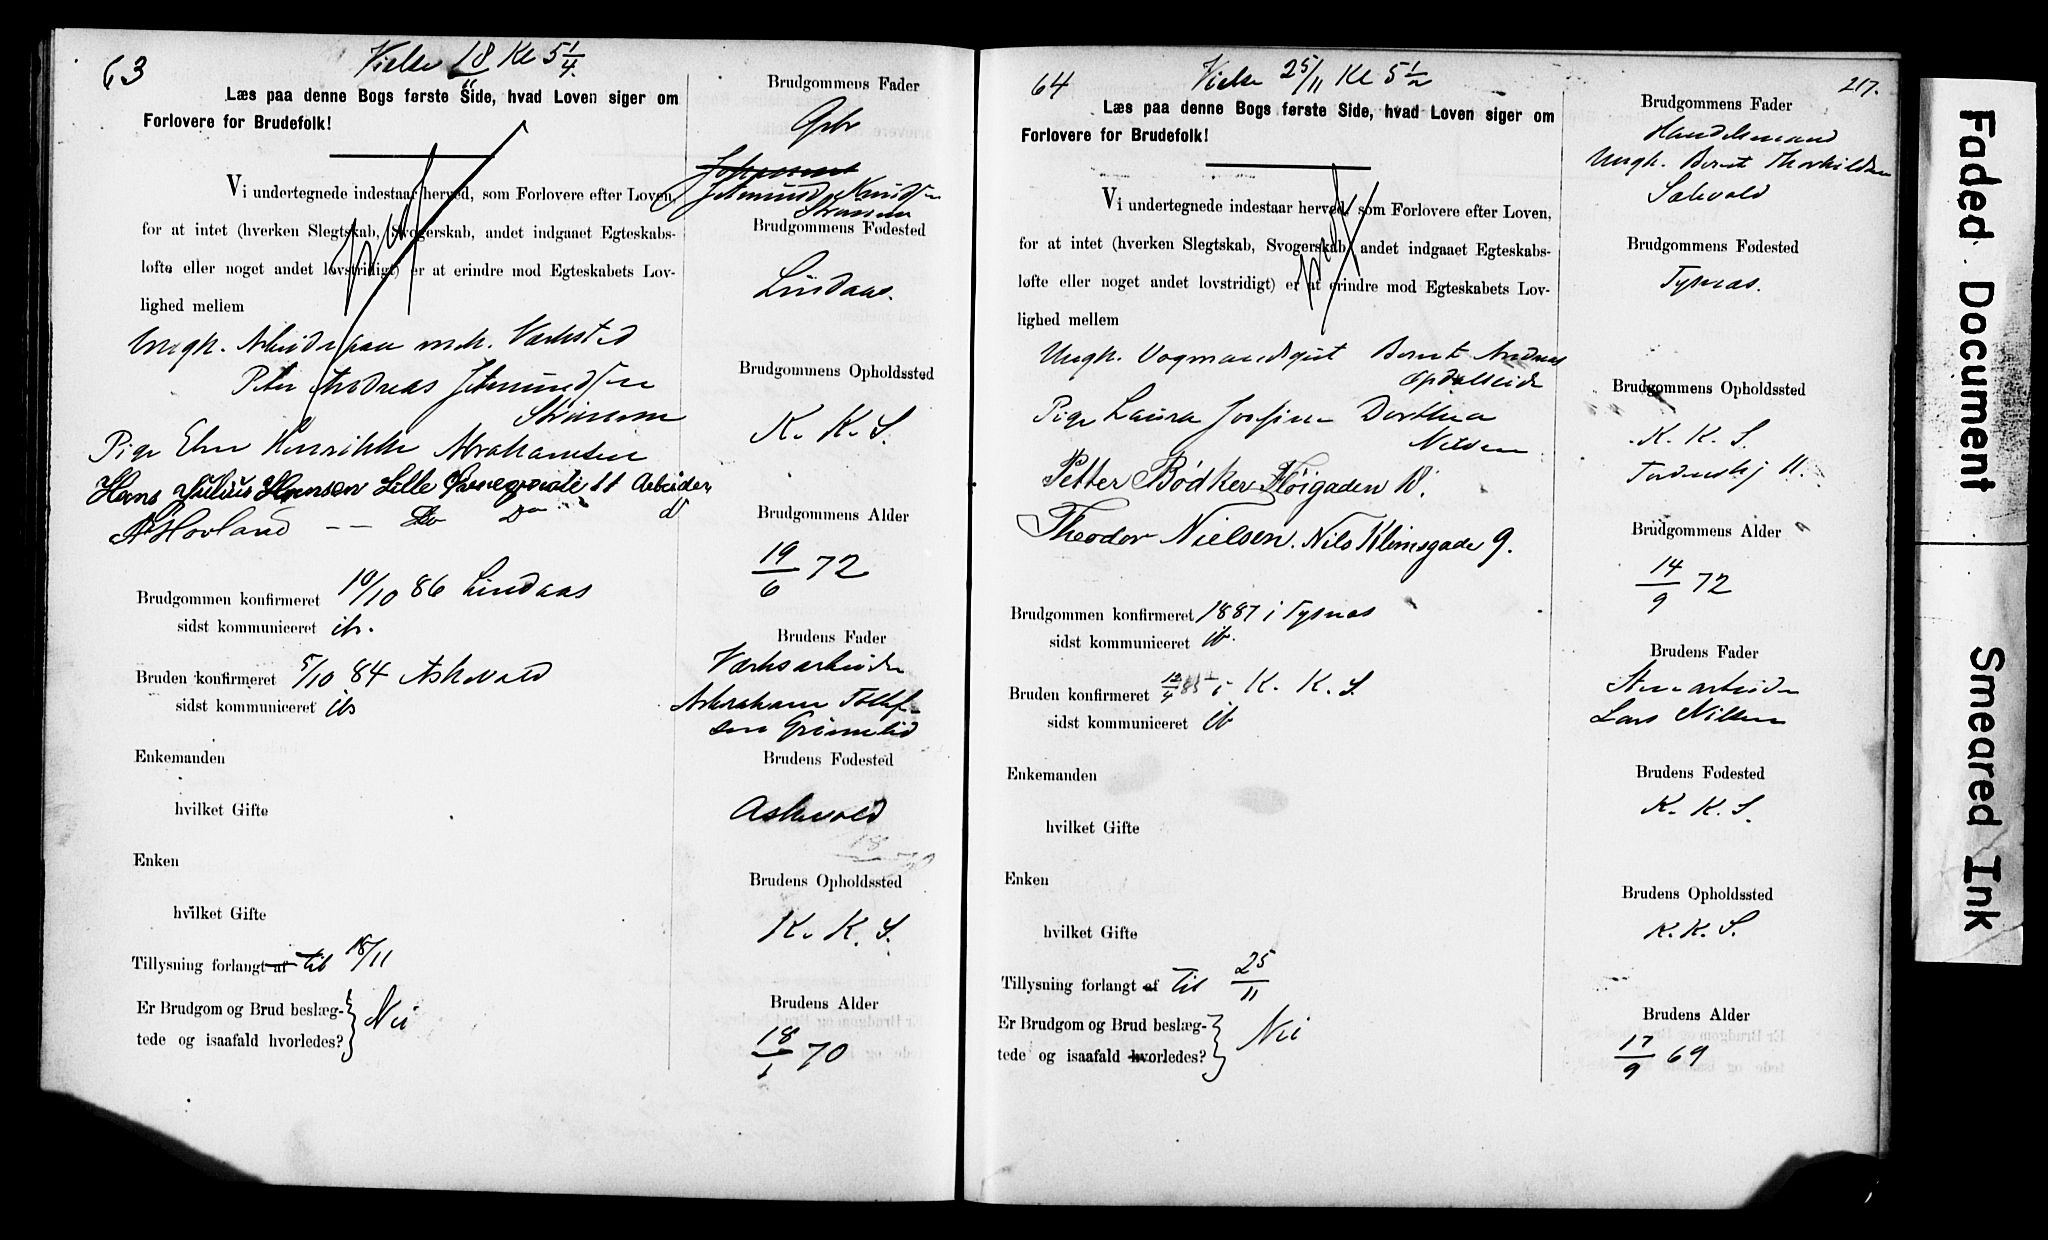 63
Vielse 18/11 Kl 5 1/4.
Læs paa denne Bogs første Side, hvad Loven siger om
Forlovere for Brudefolk!
Vi undertegnede indestaar herved, som Forlovere efter Loven,
for at intet (hverken Slegtskab, Svogerskab, andet indgaaet Egteskabs-
løfte eller noget andet lovstridigt) er at erindre mod Egteskabets Lov-
lighed mellem
Ungk. Arbeider paa mek. Værksted
Peter Andreas Jetmundsen
Strømsem
Pige Elen Henrikke Abrahamsen
Hans Julius Hansen Lille 11 Arbeider
A Hovland -- Do Do d
Brudgommen konfirmeret 10/10 86 Lindaas
sidst kommuniceret ib.
Bruden konfirmeret 5/10 84 Askevold
sidst kommuniceret ib
Enkemanden
hvilket Gifte
Enken
hvilket Gifte
Tillysning forlangt af til 18/11
Er Brudgom og Brud beslæg-
tede og isaafald hvorledes? Nei
Brudgommens Fader
Gbr
Jetmund Knudsen
Brudgommens Fødested
Lindaas.
Brudgommens Opholdssted
K. K. S.
Brudgommens Alder
19/6 72
Brudens Fader
Værksarbeider
Abraham Tollef-
sen Grimelid
Brudens Fødested
Askevold
Brudens Opholdssted
K. K. S.
Brudens Alder
18/1 70
64
Vielse 25/11 Kl 5 1/2
217.
Læs paa denne Bogs første Side, hvad Loven siger om
Forlovere for Brudefolk!
Vi undertegnede indestaar herved, som Forlovere efter Loven,
for at intet (hverken Slegtskab, Svogerskab, andet indgaaet Egteskabs-
løfte eller noget andet lovstridigt) er at erindre mod Egteskabets Lov-
lighed mellem
Ungk. Vognmandsgut Bernt Andreas
Opdalseide
Pige Laura Josefine Dorthea
Nilsen
Petter Bødker Fløigaden 10.
Theodor Nielsen. Nils Klimsgade 9.
Brudgommen konfirmeret 1887 i Tysnæs
sidst kommuniceret ib.
Bruden konfirmeret 12/4 85 i K. K. S.
sidst kommuniceret ib
Enkemanden
hvilket Gifte
Enken
hvilket Gifte
Tillysning forlangt af til 25/11
Er Brudgom og Brud beslæg-
tede og isaafald hvorledes? Nei
Brudgommens Fader
Handelsmand
Ungk. Bernt Thorkildsen
Sælevold
Brudgommens Fødested
Tysnæs.
Brudgommens Opholdssted
K. K. S.
Tordenskj 11.
Brudgommens Alder
14/9 72
Brudens Fader
Stenarbeider
Lars Nilsen
Brudens Fødested
K. K. S.
Brudens Opholdssted
K. K. S.
Brudens Alder
17/9 69
Faded Document
Smeared Ink